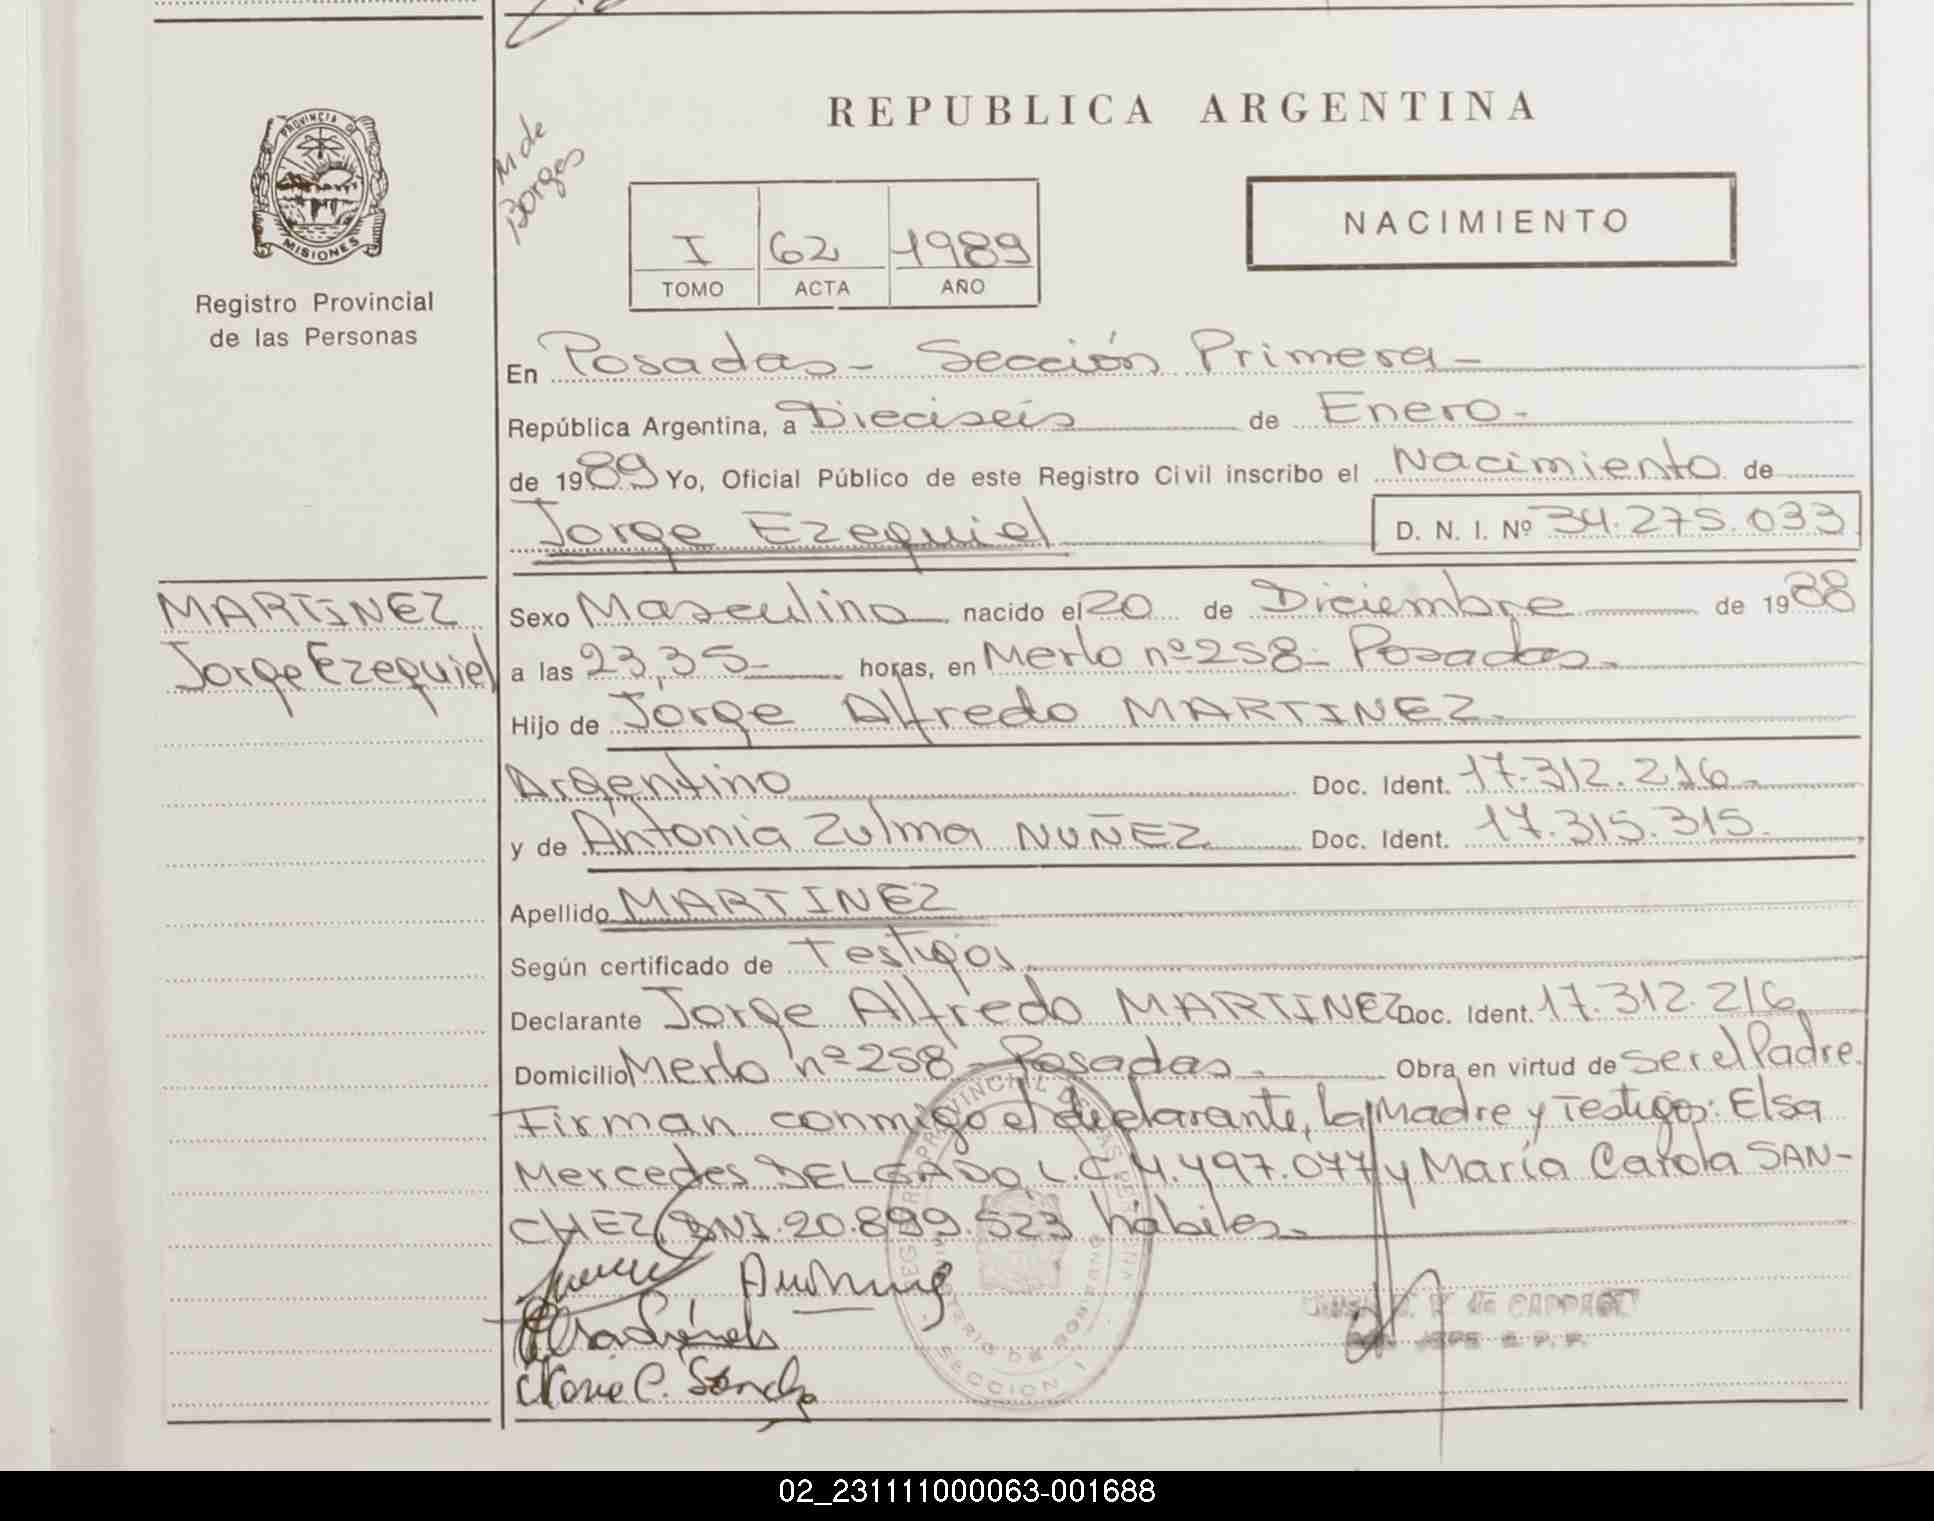 REPUBLICA ARGENTINA
M de
Borges
PROVINCIA DE
MISIONES
Registro Provincial
de las Personas
I 62 1989
TOMO ACTA AÑO
NACIMIENTO
En Posadas - Sección Primera -
República Argentina, a Dieciseis de Enero -
de 1989 Yo, Oficial Público de este Registro Civil inscribo el Nacimiento de
Jorge Ezequiel D. N. I. Nº 34.275.033
MARTINEZ
Jorge Ezequiel
Sexo Masculino nacido el 20 de Diciembre de 1988
a las 23,35 - horas, en Merlo nº 258 - Posadas -
Hijo de Jorge Alfredo MARTINEZ -
Argentino Doc. Ident. 17.312.216 -
y de Antonia Zulma NUÑEZ Doc. Ident. 17.315.315.
Apellido MARTINEZ
Según certificado de Testigos
Declarante Jorge Alfredo MARTINEZ Doc. Ident. 17.312.216
Domicilio Merlo nº 258 - Posadas - Obra en virtud de ser el Padre.
Firman conmigo el declarante, la Madre y Testigos: Elsa
Mercedes DELGADO, L.C. 4.497.077 y María Carola SAN-
CHEZ, DNI. 20.899.523 hábiles -
Maria C. Sanchez
SECCION 1
02_231111000063-001688